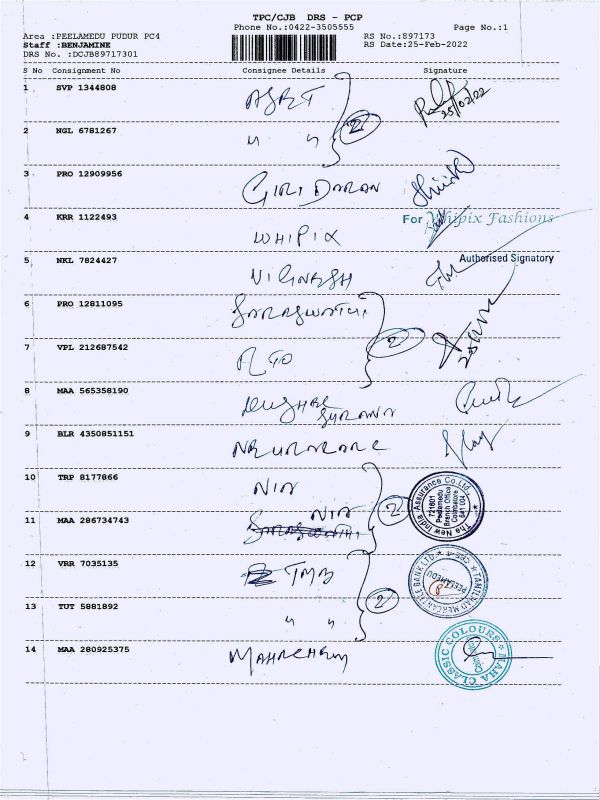 TPC/CJB DRS - PCP
Phone No.:0422-3505555 Page No.:1
Area :PEELAMEDU PUDUR PC4 RS No.:897173
Staff :BENJAMINE RS Date:25-Feb-2022
DRS No. :DCJB89717301
S No Consignment No Consignee Details Signature
1 SVP 1344808
25/02/22
2 NGL 6781267 " " 2
3 PRO 12909956 GIRI DARAN
For Whipix Fashions
4 KRR 1122493 WHIPIX
Authorised Signatory
5 NKL 7824427 VIGNESH
6 PRO 12811095 SARASWATHI
7 VPL 212687542 RTO 2
8 MAA 565358190 SURANA
9 BLR 4350851151
10 TRP 8177866 NIA
11 MAA 286734743 NIA 2
The New India Assurance Co.Ltd.
721601
Peelamedu
Branch Office
Coimbatore
641 004
12 VRR 7035135 TMB
TAMILNAD MERCANTILE BANK LTD.
PEELAMEDU
13 TUT 5881892 " " 2
14 MAA 280925375
MAHA CLASSIC COLOURS